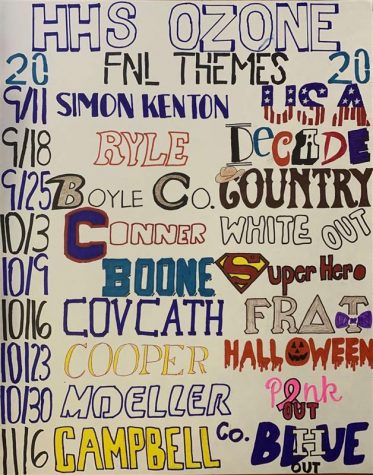 HHS OZONE
20 FNL THEMES 20
9/11 SIMON KENTON USA
9/18 RYLE DECADE
9/25 BOYLE CO. COUNTRY
10/3 CONNER WHITE OUT
10/9 BOONE SuperHero
10/16 COVCATH FRAT
10/23 COOPER HALLOWEEN
10/30 MOELLER Pink OUT
11/6 CAMPBELL Co. BLUE OUT